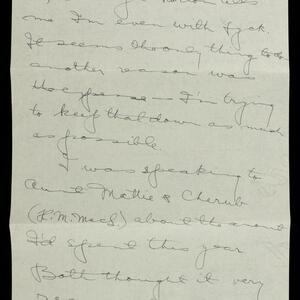 me I'm even with Jack.
It seems the only thing to do
another reason was
the expense — I'm trying
to keep that down as much
as possible.
I was speaking to
Aunt Mattie & Cherub
(K.M. MacL) about the amt
I'd spent this year
Both thought it very